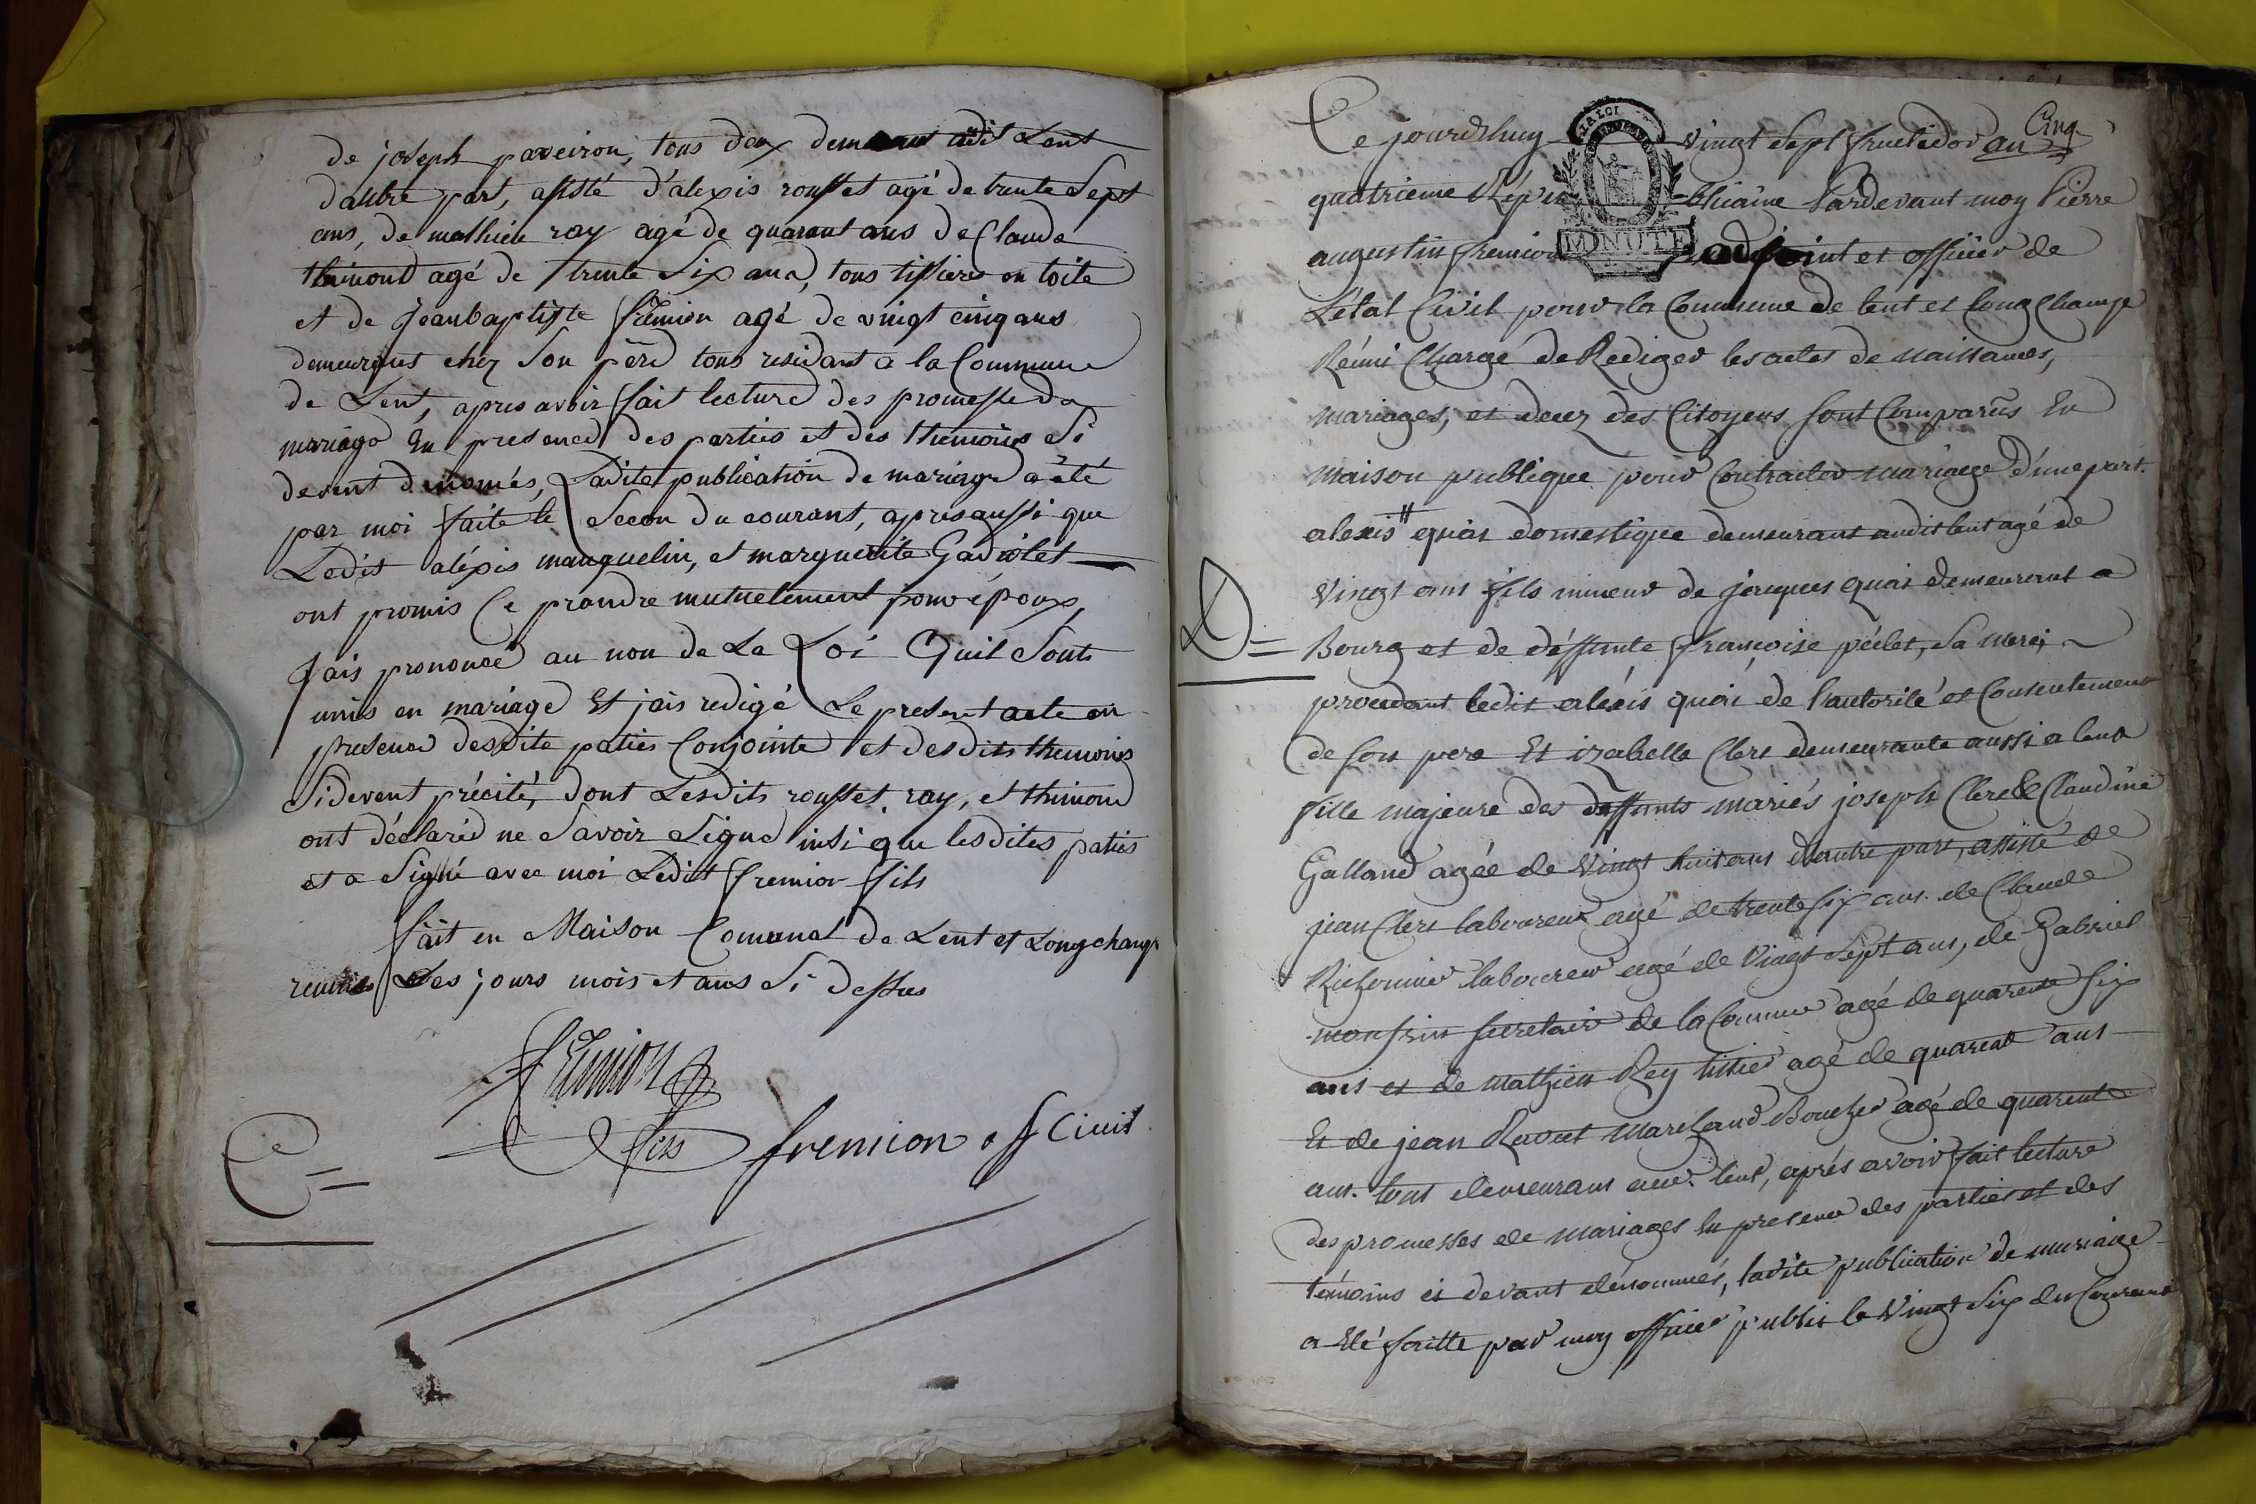 de joseph paveiron, tous deux audit Lent
dautre part, assité d'alexis rousset agé de trente Sept
ans, de mathieu ray agé de quarant ans de Claude
thimond agé de trente Six ans, tous tissiers en toite
et de Jeanbaptiste frémion agé de vingt cinq ans
demeurant chez Son père tous residant a la Commune
de Lent, apres avoir fait lecture des promesse de
mariage En presence des parties et des themoins Si
devent denomés, Ladite publication de mariage a été
par moi faite le Secon du courant, apres aussi que
Ledit aléxis mauquelin, et marguerite Gadiolet
ont promis Ce prandre mutuelement pour époux,
Jais prononcé au non de La Loi Quil Sont
unis en mariage Et jais redigé Le present acte en
presence desdite paties Conjointe et desdits themoins
Sidevent précité, dont Lesdits rousset, ray, et thimond
ont déclaré ne Savoir Signe insi que lesdites paties
et a Signé avec moi Ledit fremion fils
fait en Maison Comunal de Lent et Longchamp
reunis Les jours mois et ans Si dessus
frémion
fils fremion off Civil
C=
Ce jourdhuy vingt Sept fructidor an Cinq
LA LOI
quatrieme Répu-blicaine Pardevant moy Pierre
augustin fremion adjoint et officier de
MINUTE
L'état Civil pour la Commune de lent et longChamp
Réuni Chargé de Rediger les actes de naissances,
mariages, et decez des Citoyens sont Comparûs En
maison publique pour Contracter mariage d'une part.
alexis quiar domestique demeurant audit lent agé de
Vingt ans fils mineur de jacques quai demeurant a
D=
Bourg et de déffunte françoise péclet, Sa mere,
procedant ledit aléxis quai de l'autorité et Consentement
de Son pere Et izabelle Clerc demeurante aussi a lent
fille majeure des deffunts mariés joseph Clerc & Claudine
Galland agée de Vingt huit ans d'autre part, assisté de
jean Clerc laboureur agé de trente Six ans. de Claude
laboureur agé de Vingt Sept ans, de Gabriel
monfrin secretaire de la Commune agé de quarente Six
ans et de mathieu Rey tissier agé de quarente ans
Et de jean Ravet marchand Boucher agé de quarente
ans. tous demeurans aud. lent, aprés avoir fait lecture
des promesses de mariages En presence des parties et des
témoins ci devant dénommés, ladite publication de mariage
a Eté faitte par moy officier public le Vingt Six du Courant